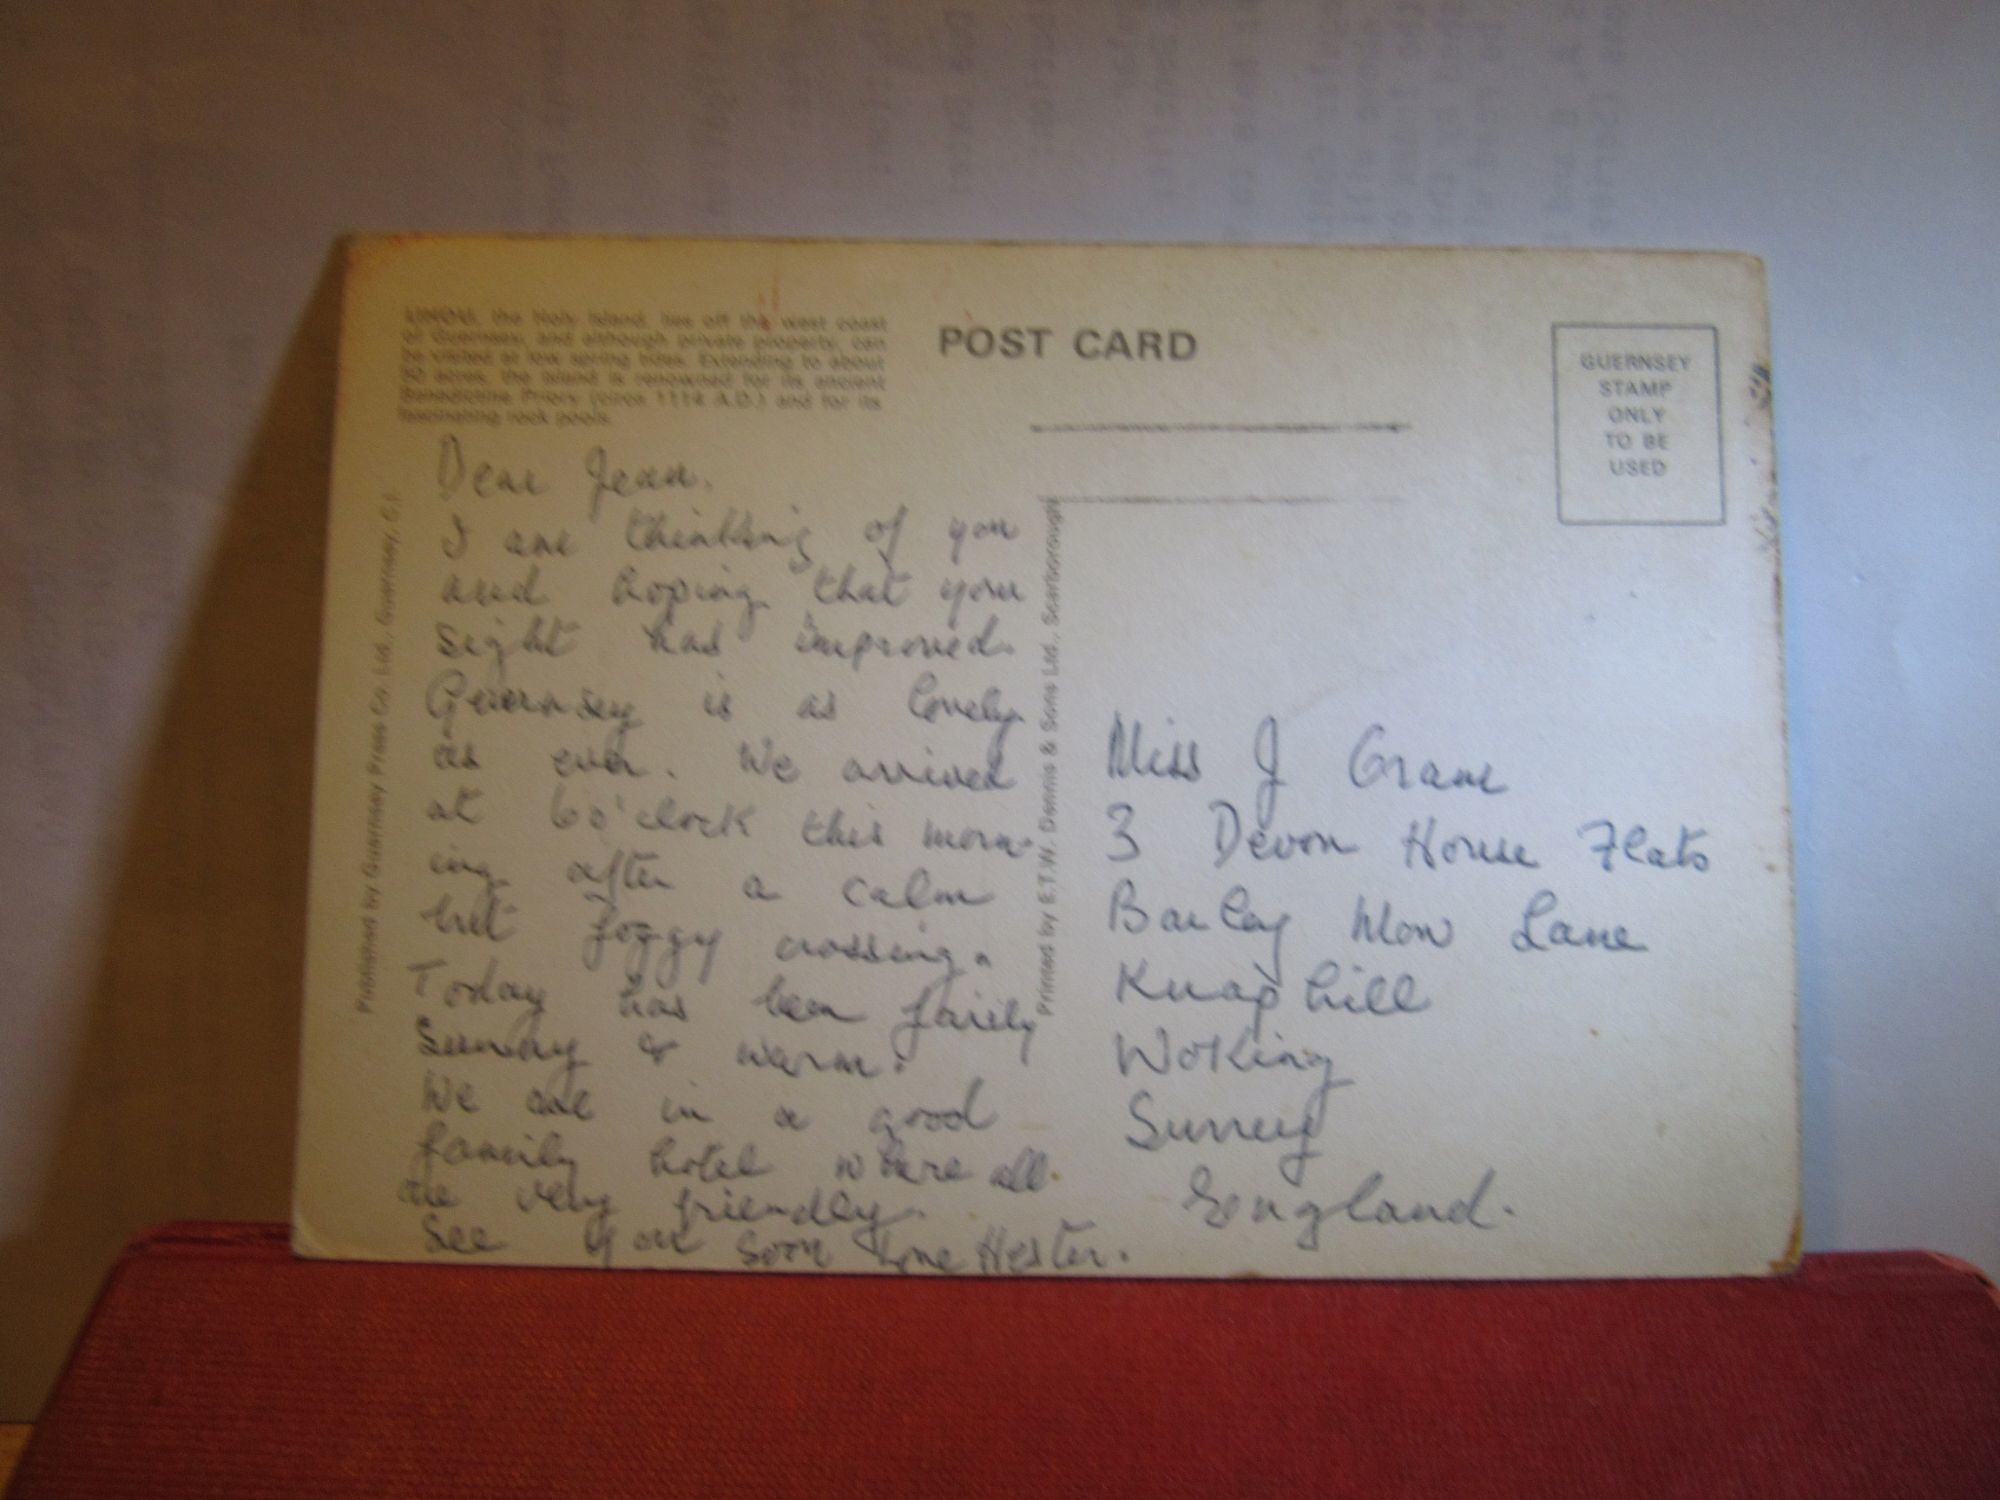 LIHOU, the Holy Island, lies off the west coast
of Guernsey, and although private property, can
be visited at low spring tides. Extending to about
50 acres, the island is renowned for its ancient
Benedictine Priory (circa 1114 A.D.) and for its
fascinating rock pools.
POST CARD
GUERNSEY
STAMP
ONLY
TO BE
USED
Published by Guernsey Press Co. Ltd., Guernsey, C.I.
Printed by E.T.W. Dennis & Sons Ltd., Scarborough
Dear Jean.
I am thinking of you
and hoping that your
sight has improved.
Guernsey is as lovely
as ever. We arrived
at 6 o'clock this morn-
ing after a calm
but foggy crossing.
Today has been fairly
Sunny & warm.
We are in a good
family hotel where all
are very friendly.
See you soon Love Hester.
Miss J
3 Devon House Flats
Barley Mow Lane
Knaphill
Woking
Surrey
England.